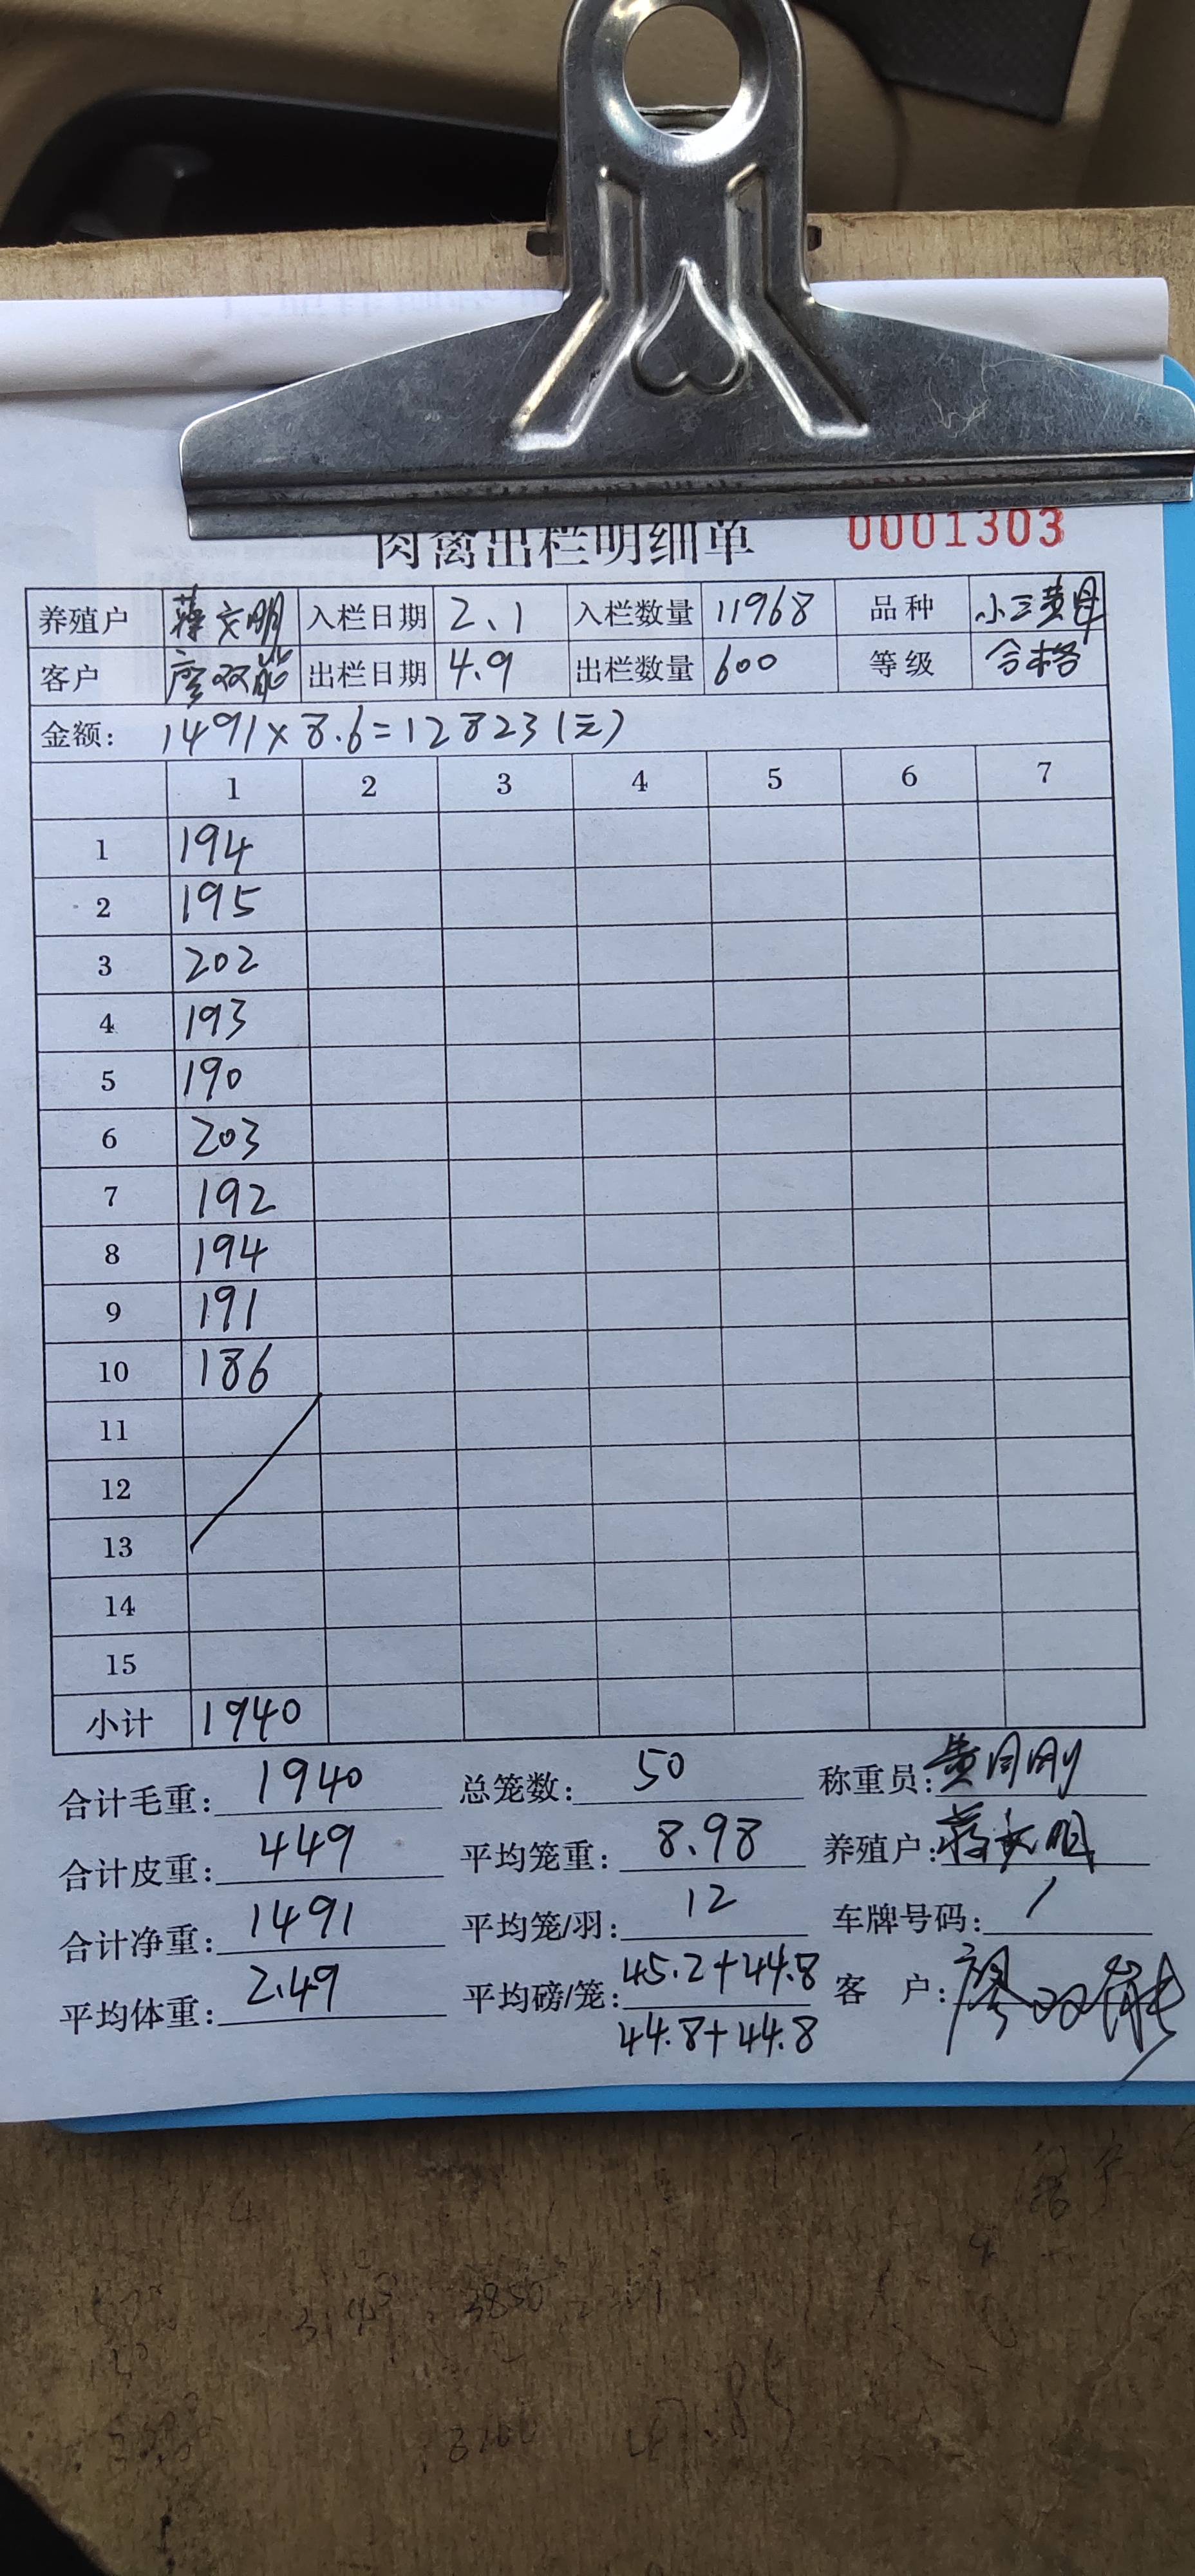 肉禽出栏明细单 0001303
养殖户 蒋文明 入栏日期 2.1 入栏数量 11968 品种 小三黄母
客户 廖双能 出栏日期 4.9 出栏数量 600 等级 合格
金额: 1491×8.6=12823(元)
1 2 3 4 5 6 7
1 194
2 195
3 202
4 193
5 190
6 203
7 192
8 194
9 191
10 186
11
12
13
14
15
小计 1940
合计毛重: 1940 总笼数: 50 称重员: 黄周刚
合计皮重: 449 平均笼重: 8.98 养殖户: 蒋文明
合计净重: 1491 平均笼/羽: 12 车牌号码: /
平均体重: 2.49 平均磅/笼: 45.2+44.8 客 户: 廖双能
44.8+44.8